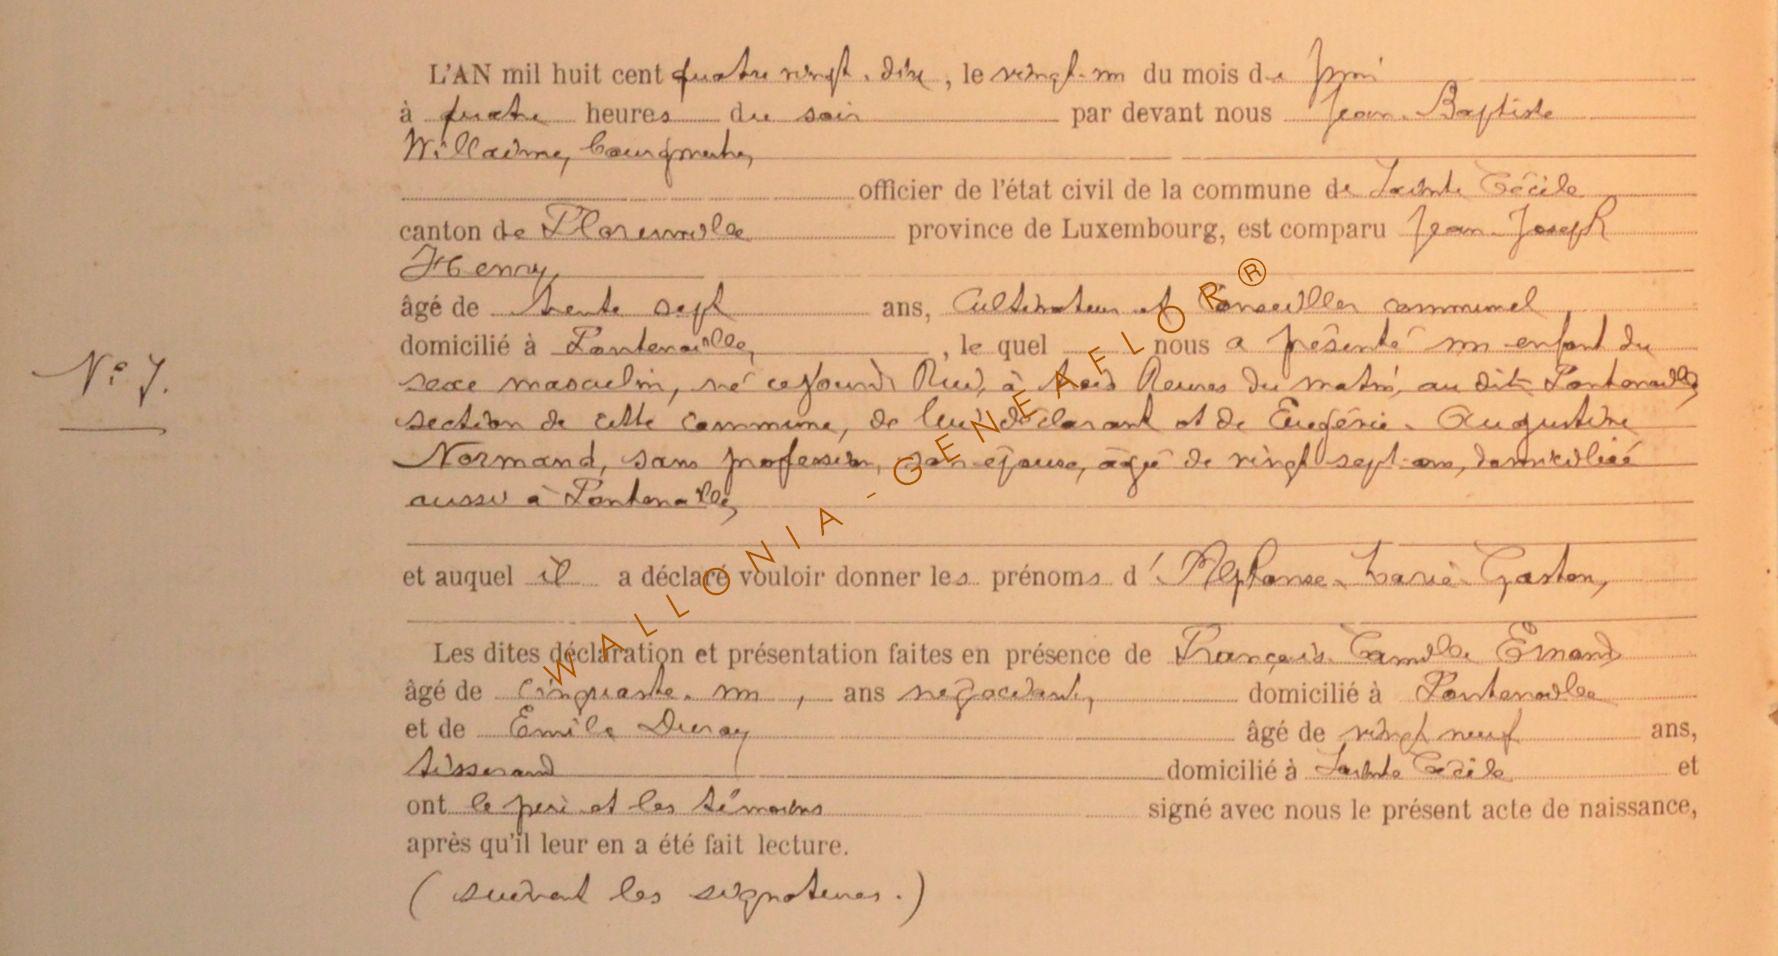 L'AN mil huit cent quatre vingt-dix, le vingt-un du mois de Juin
à quatre heures du soir par devant nous Jean-Baptiste
Willaime, bourgmestre,
officier de l'état civil de la commune de Sainte Cécile
canton de Florenville province de Luxembourg, est comparu Jean-Joseph
Henry,
âgé de trente sept ans, Cultivateur et Conseiller communal
domicilié à Fontenoille, le quel nous a présenté un enfant du
N° 7.
sexe masculin, né cejourd'hui, à trois heures du matin, au dit Fontenoille,
section de cette commune, de lui déclarant et de Eugénie-Augustine
Normand, sans profession, son épouse, âgée de vingt sept ans, domiciliée
aussi à Fontenoille,
et auquel il a déclaré vouloir donner les prénoms d'Alphonse-Marie-Gaston,
Les dites déclaration et présentation faites en présence de François-Camille Emond
âgé de cinquante-un, ans négociant, domicilié à Fontenoille
et de Emile Duray âgé de vingt neuf ans,
tisserand domicilié à Sainte Cécile et
ont le père et les témoins signé avec nous le présent acte de naissance,
après qu'il leur en a été fait lecture.
(suivent les signatures.)
WALLONIA-GENEAFLOR®